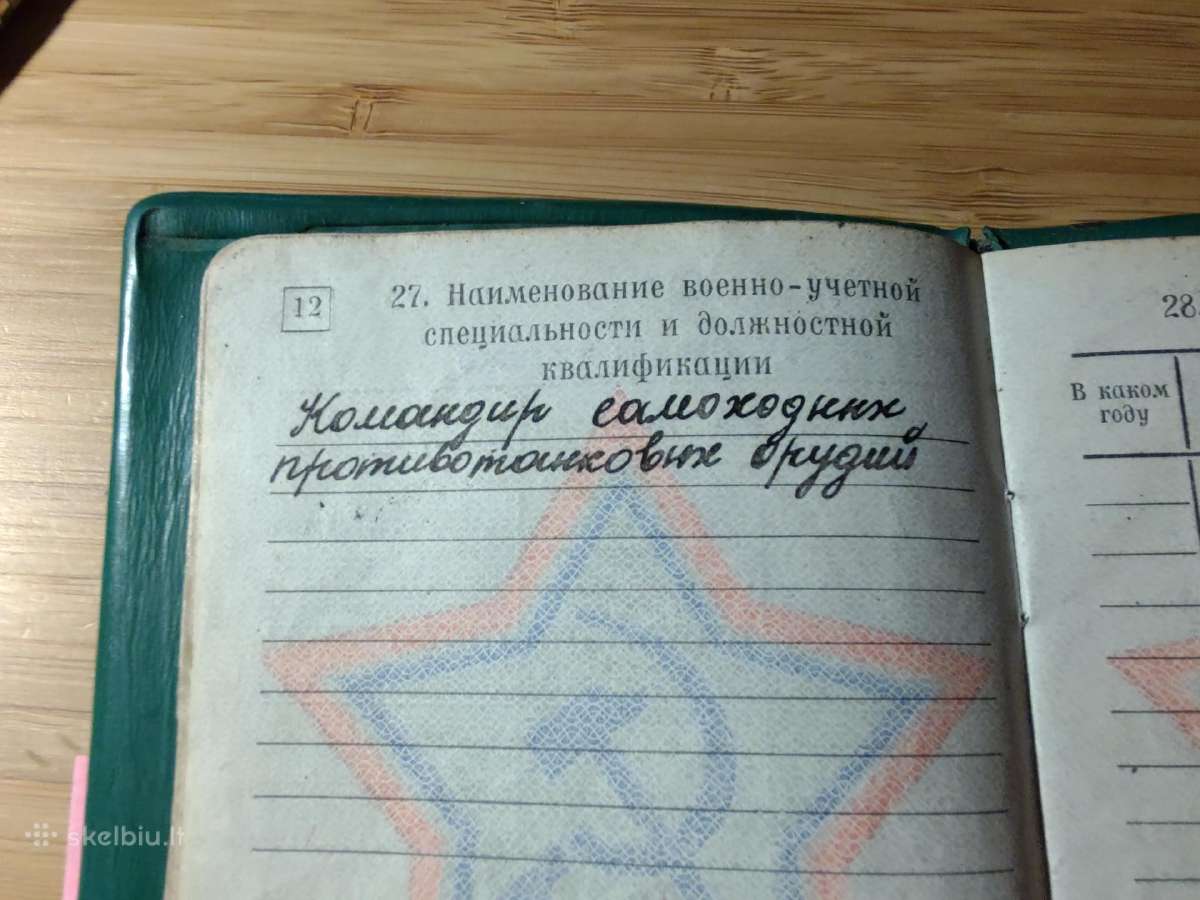 12
27. Наименование военно-учетной
специальности и должностной
квалификации
Командир самоходных
противотанковых орудий
28.
В каком
году
skelbiu.lt